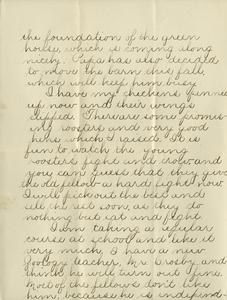 the foundation of the green
house, which is coming along
nicely. Papa has also decided
to move the barn this fall,
which will keep him busy.
I have my chickens penned
up now and their wings
clipped. There are some promis-
ing roosters and very good
hens which I raised. It is
fun to watch the young
roosters fight and crow and
you can guess that they give
the old fellow a hard fight. Now
I will pick out the best and
sell the rest soon, as they do
nothing but eat and fight.
I am taking a regular
course at school and like it
very much. I have a new
Zoology teacher, Mr Crosby, and
think he will turn out fine.
Most of the fellows don't like
him, because he is independ-